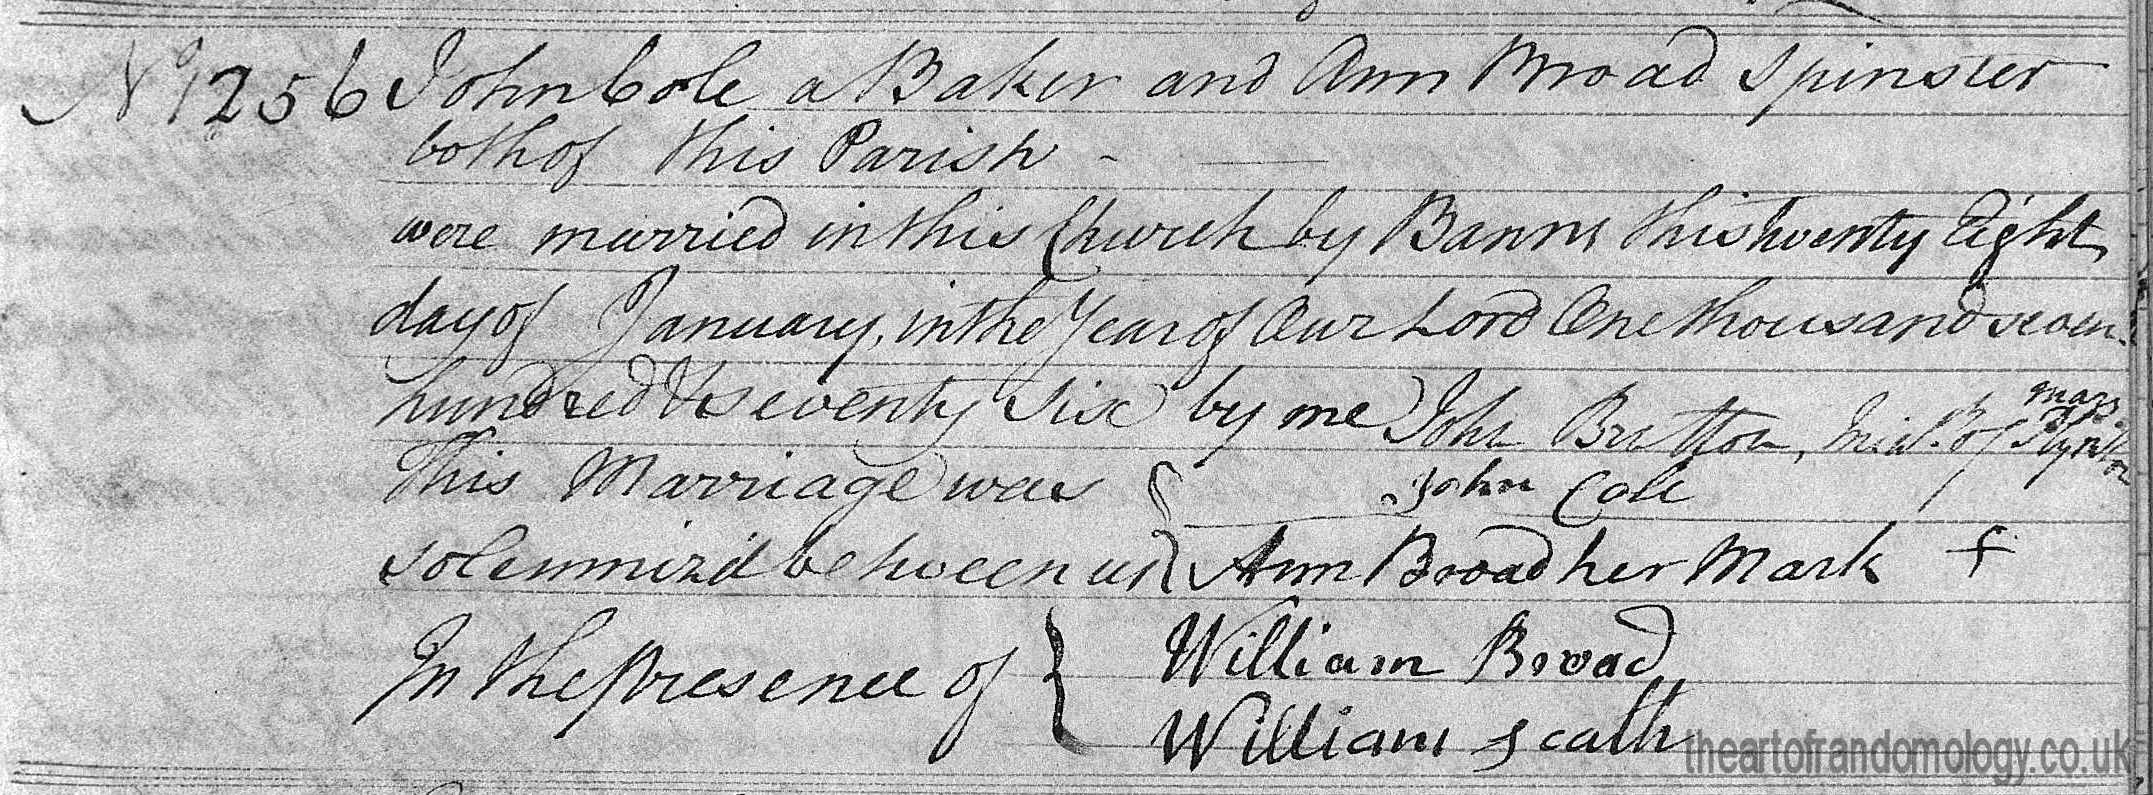 No 1256 John Cole a Baker and Ann Broad Spinster
both of this Parish -
were married in this Church by Banns this twenty Eight
day of January, in the Year of Our Lord One thousand seven
hundred & seventy six by me John Bretton, of
This Marriage was John Cole
solemnizd between us Ann Broad her Mark
In the presence of William Broad
William Scath
theartofrandomology.co.uk